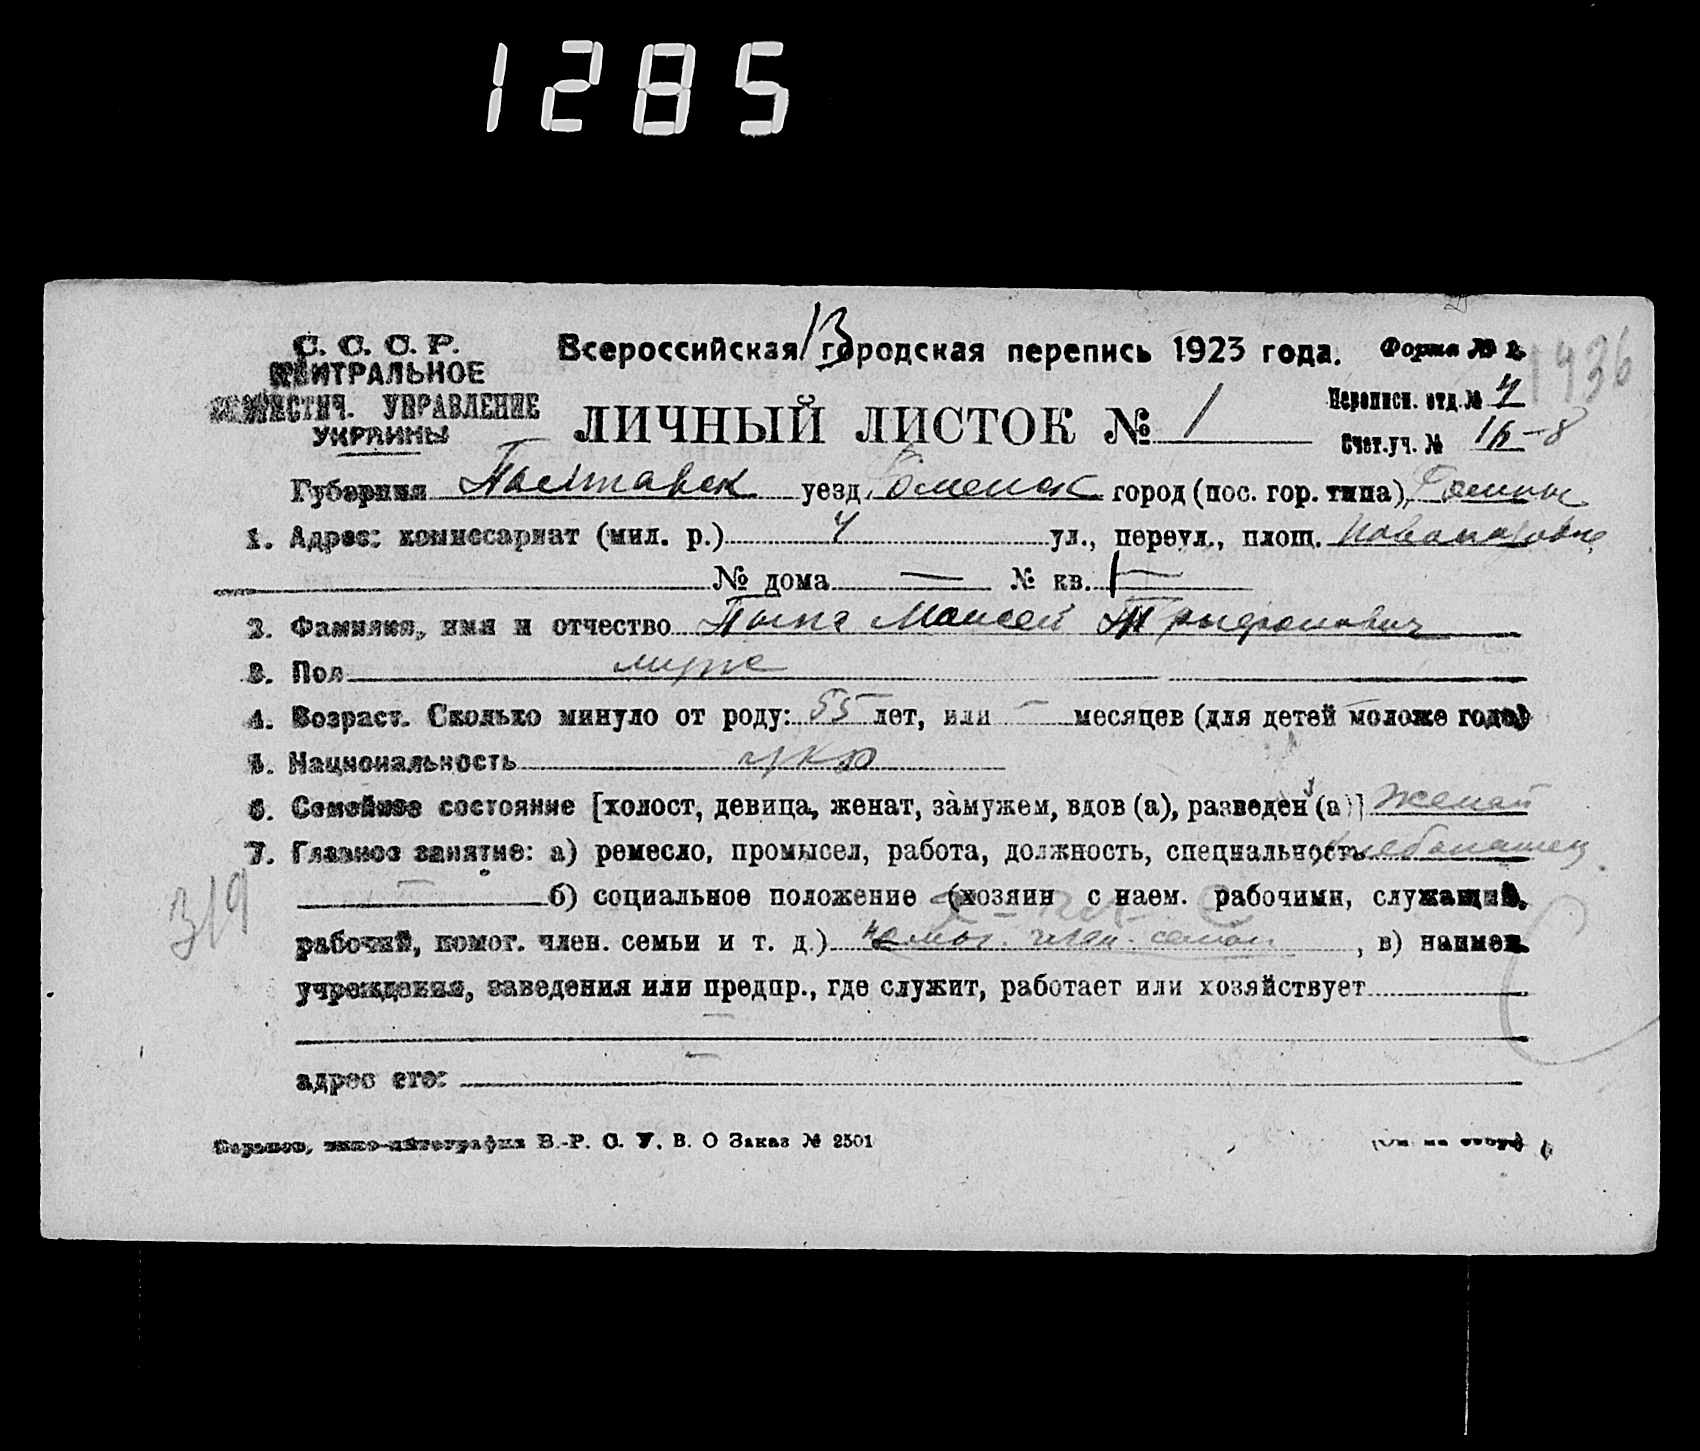 1285
С. С. С. Р.
ЦЕНТРАЛЬНОЕ
СТАТИСТИЧ. УПРАВЛЕНИЕ
УКРАИНЫ
13
Всероссийская городская перепись 1923 года.
Форма № 2.
1936
ЛИЧНЫЙ ЛИСТОК № 1
Переписн. отд. № 4
Счет. уч. № 16-8
Губерния Полтавск уезд Роменск город (пос. гор. типа) Ромны
1. Адрес: комиссариат (мил. р.) 4 ул., переул., площ.
№ дома — № кв. —
2. Фамилия, имя и отчество Моисей Трыфонович
3. Пол муж
4. Возраст. Сколько минуло от роду: 55 лет, или – месяцев (для детей моложе года)
5. Национальность укр
6. Семейное состояние [холост, девица, женат, замужем, вдов (а), разведен (а)] Женат
7. Главное занятие: а) ремесло, промысел, работа, должность, специальность хлебопашец
319
— б) социальное положение (хозяин с наем. рабочими, служащий,
рабочий, помог. член. семьи и т. д.) помог. член. семьи, в) наимен.
учреждения, заведения или предпр., где служит, работает или хозяйствует
—
адрес его: —
Харьков, типо-литография В.-Р. С. У. В. О Заказ № 2501
(См. на обор.)